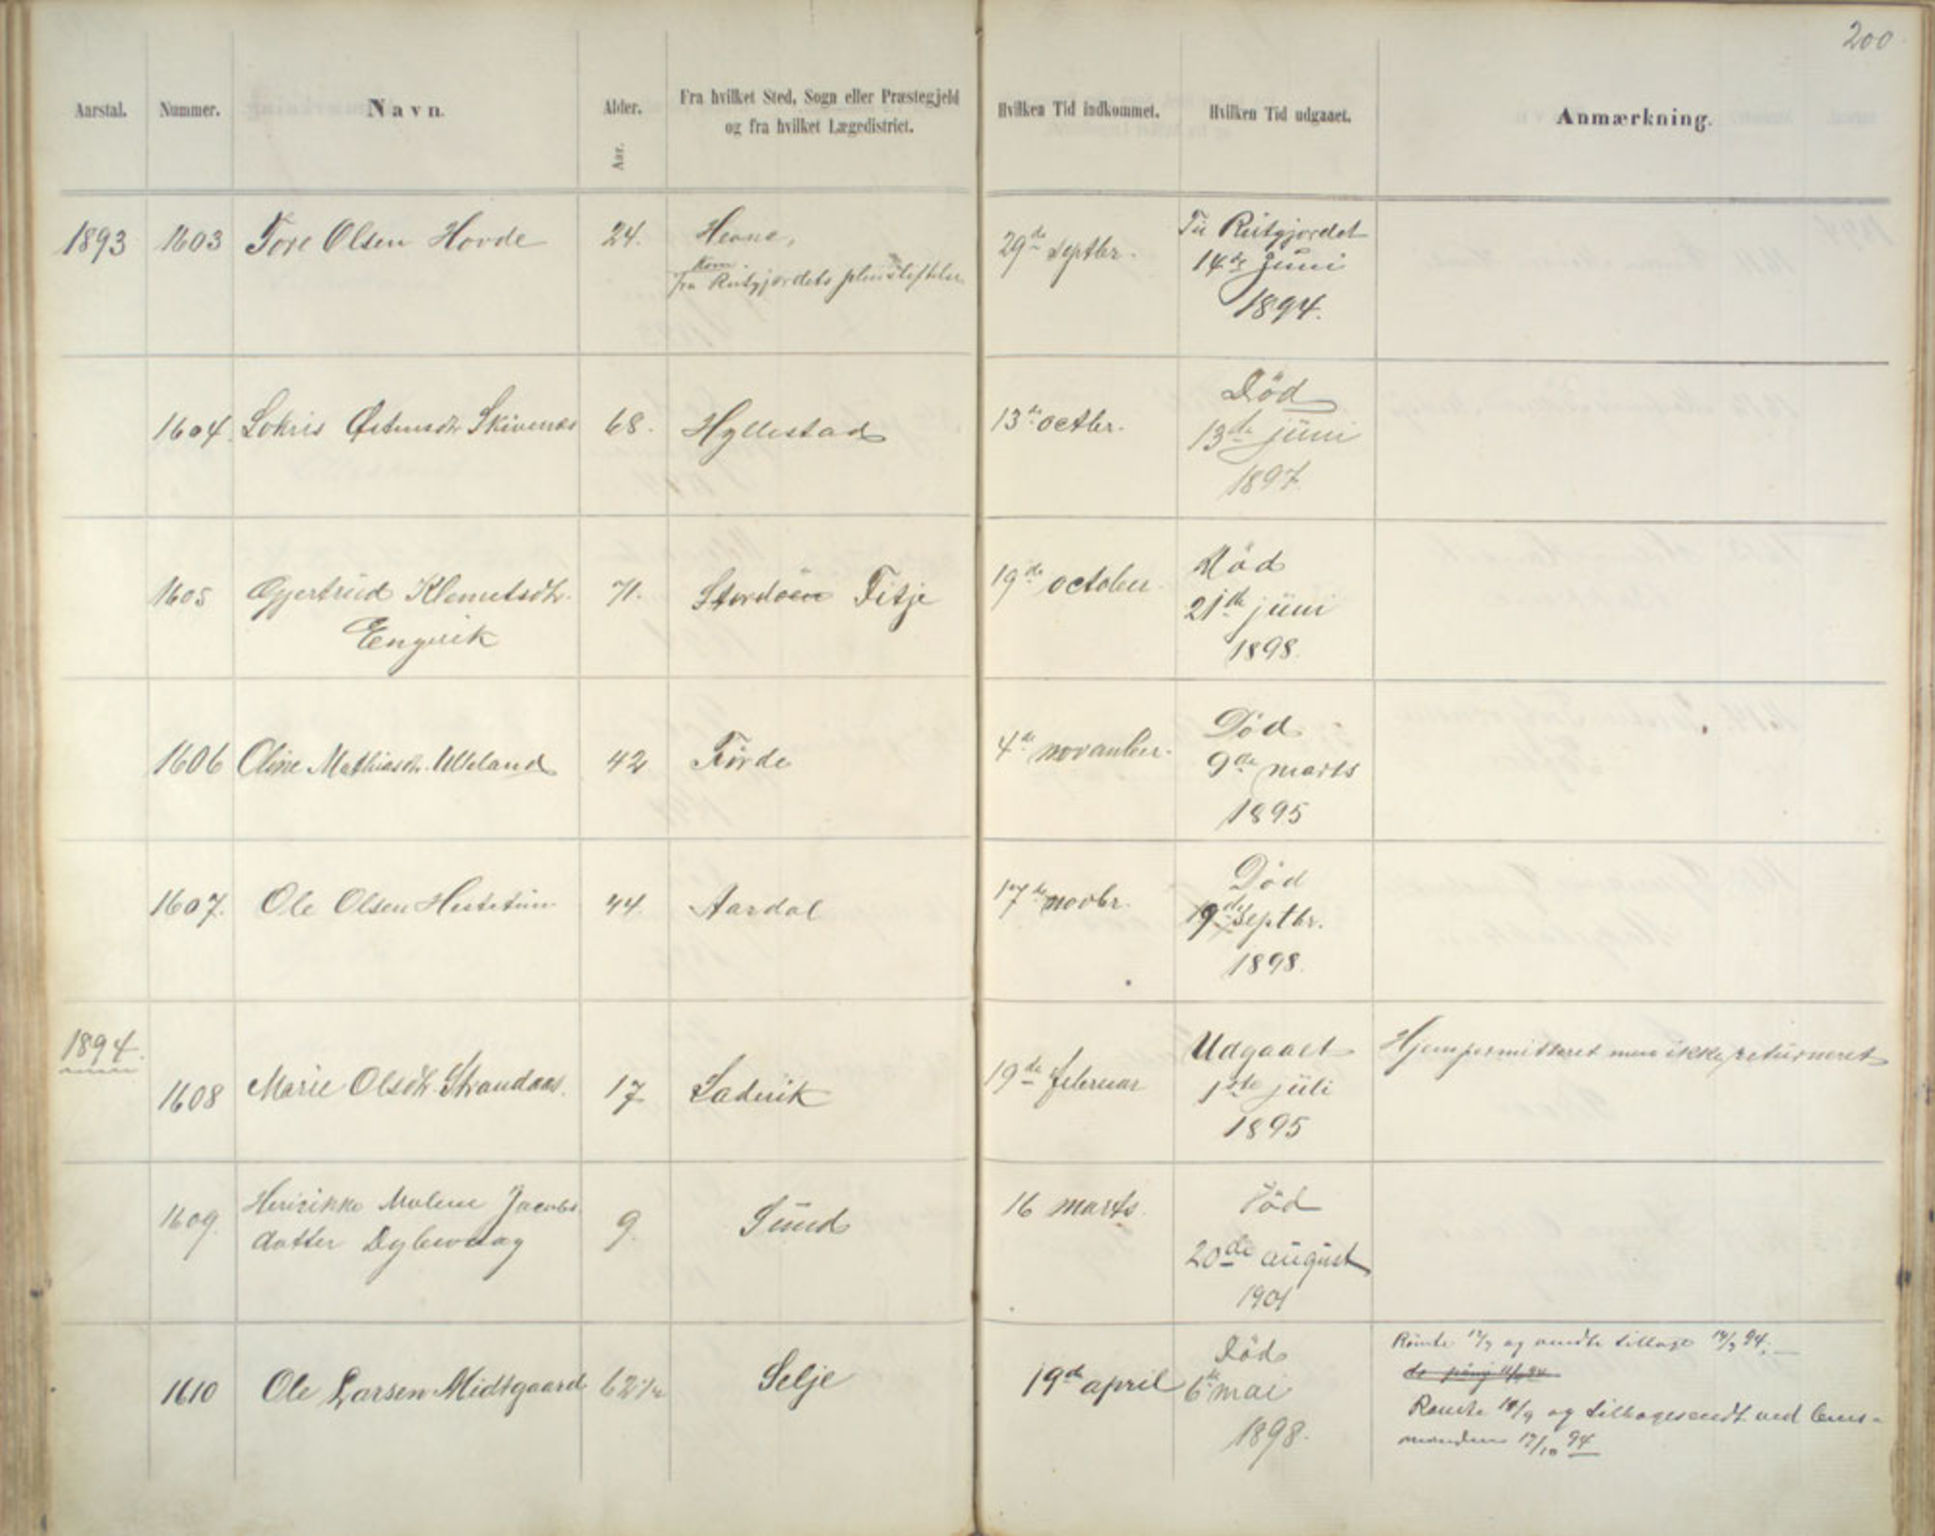 200
Aarstal. Nummer. Navn. Alder. Fra hvilket Sted, Sogn eller Præstegjeld Hvilken Tid indkommet. Hvilken Tid udgaaet. Anmærkning.
og fra hvilket Lægedistrict.
Aar.
1893 1603 Tore Olsen Hovde 24. 29de Septbr. Til Reitgjerdet
Kom 14de Juni
fra Reitgjerdets 1894.
1604. Østensdtr Skivenes 68. Hyllestad 13de octbr. Død
13de juni
1897
1605 Gjertrud Klemetsdtr. 71. Stordøen Fitje 19de october Død
Engvik 21de juni
1898.
1606 Oline Mathiasdtr. Ulleland 42 Førde 4de november. Død
9de marts
1895
1607. Ole Olsen Hestetun 44. Aardal 17de novbr. Død
9de septbr.
1898.
1894.
1608 Marie Olsdtr. Strandaas. 17 Ladvik 19de februar Udgaaet Hjempermitteret men ikke returneret
1ste juli
1895
1609. Henrikke Malene Jacobs 9. Sund 16 marts. Død
datter Dybevaag 20de august
1901
1610 Ole Larsen Midtgaard 62 1/2 Selje 19de april Død Rømte 12/7 og sendte tilbage 14/7 94.
6te mai
1898. Rømte 10/9 og tilbagesendt ved Lens-
manden 12/10 94